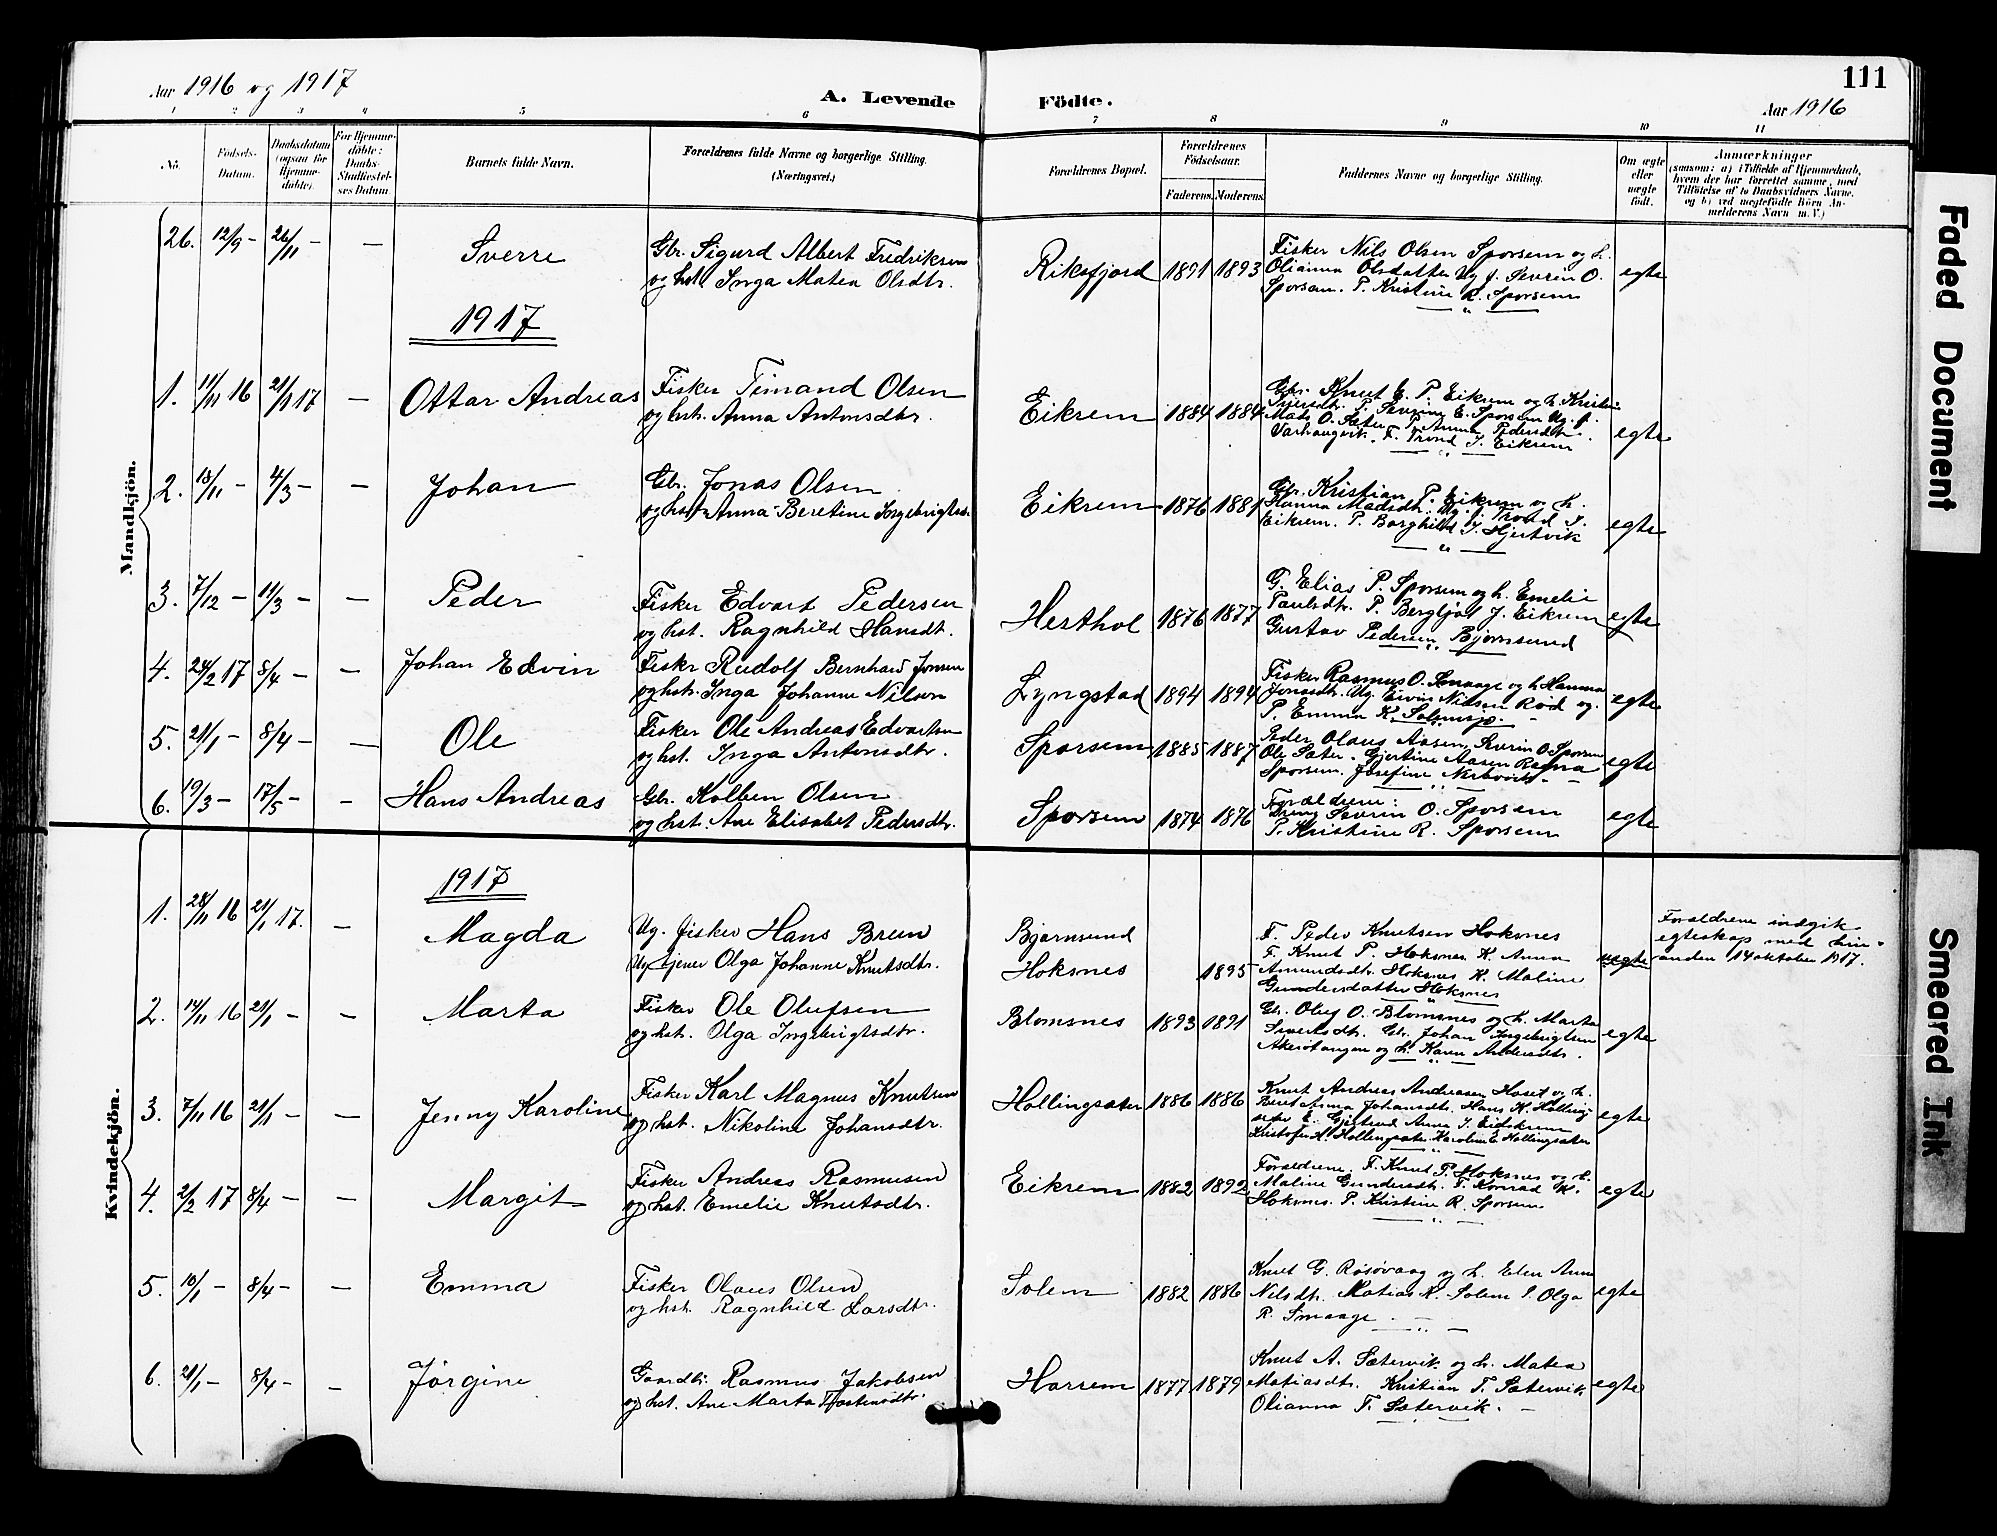 111
Aar 1916 og 1917
A. Levende Födte.
Aar 1916
1 2 3 4 5 6 7 8 9 10 11
No.
Fødsels-Datum.
Daabsdatum (ogsaa for Hjemmedøbte).
For Hjemmedøbte: Daabs-Stadfæstelses Datum.
Barnets fulde Navn.
Forældrenes fulde Navne og borgerlige Stilling. (Næringsvei.)
Forældrenes Bopæl.
Forældrenes Fødselsaar.
Faderens. Moderens.
Faddernes Navne og borgerlige Stilling.
Om ægte eller uægte født.
Anmærkninger
(saasom: a) i Tilfælde af Hjemmedaab, hvem der har forrettet samme, med Tilføielse af to Daabsvidners Navne. og b) ved uegtefødte Börn Anmelderens Navn m. V.)
Mandkjön.
26. 12/9 - 26/11 - — Sverre
Gbr. Sigurd Albert Fredriksen
og hst. Inga Matea Olsdtr.
Riksfjord 1891 1893
Fisker Nils Olsen Sporsem og h.
Olianna Olsdatter Ug. f. Severin O.
Sporsem. P. Kristine R. Sporsem
egte
1917
1. 11/11 16 21/1 17 — Ottar Andreas
Fisker Timand Olsen
og hst. Anna Antonsdtr.
Eikrem 1884 1884
Gbr. Knut E. P. Eikrem og h. Kristine
Iversdtr. P. Severine E. Sporsem Ug. f.
Mats O. Sæter P. Anna Pedersdtr.
Varhaugvik. F. Trond J. Eikrem
egte
2. 13/11 - 4/3 - — Johan
Gbr. Jonas Olsen
og hst. Anna Beretine Ingebrigtsd.
Eikrem 1876 1881
Gbr. Kristian P. Eikrem og h.
Hanna Madsdtr. Ug. f. Trond J.
Eikrem. P. Borghild J. Hjertvik
egte
3. 7/12 - 11/3 - — Peder
Fisker Edvart Pedersen
og hst. Ragnhild Hansdt.
Hesthol 1876 1877
G. Elias P. Sporsem og h. Emelie
Paulsdtr. P. Bergljot J. Eikrem
Gustav Pedersen Bjørnsund
egte
4. 24/2 17 8/4 - — Johan Edvin
Fisker Rudolf Bernhard Jonsen
og hst. Inga Johanne Nilsen
Lyngstad 1894 1894
Fisker Rasmus O. Smaage og h. Hanna
Jonasdtr. Ug. Eivin Nilsen Rød og
P. Emma K. Solemsjø.
egte
5. 21/1 - 8/4 - — Ole
Fisker Ole Andreas Edvartsen
og hst. Inga Antonsdtr.
Sporsem 1885 1887
Peder Olaus Aasen, Severin O. Sporsem
Ole Sæter. Gjertine Aasen Ragna
Sporsem. Josefine Nerbovik
egte
6. 19/3 - 17/5 - — Hans Andreas
Gbr. Kolben Olsen
og hst. Ane Elisabet Pedersdtr.
Sporsem 1874 1876
Forældrene:
Dreng Severin O. Sporsem
P. Kristine R. Sporsem
egte
Kvindekjön.
1917
1. 28/11 16 21/1 17. — Magda
Ug. fisker Hans Breen
Ug. tjener Olga Johanne Knutsdtr.
Bjørnsund
Hoksnes 1895
F. Peder Knutsen Hoksnes
F. Knut P. Hoksnes K. Anna
Amundsdtr. Hoksnes K. Maline
Gundersdatter Hoksnes
uegte
Forældrene indgik
egteskap med hin-
anden 14 oktober 1917.
2. 14/11 16 21/1 - — Marta
Fisker Ole Olufsen
og hst. Olga Ingebrigtsdtr.
Blomsnes 1893 1891
Gbr. Oluf O. Blomsnes og h. Marta
Siverksdtr. Gbr. Johan Ingebrigtsen
Akerøtangen og h. Karen Andersdtr.
egte
3. 7/11 16 21/1 - — Jenny Karoline
Fisker Karl Magnus Knutsen
og hst. Nikoline Johansdtr.
Hollingsæter 1886 1886
Knut Andreas Andreasen Hoset og h.
Berit Anna Johansdtr. Hans K. Holling-
sæter E. Gjertrud Anna J. Eidskrem
Kristofer A. Hollingsæter Karoline E. Hollingsæter
egte
4. 2/2 17 8/4 - — Margit
Fisker Andreas Rasmusen
og hst. Emelie Knutsdtr.
Eikrem 1882 1892
Forældrene. F. Knut P. Hoksnes og h.
Maline Gundersdtr. F. Konrad K.
Hoksnes. P. Kristine R. Sporsem
egte
5. 10/1 - 8/4 - — Emma
Fisker Olaus Olsen
og hst. Ragnhild Larsdtr.
Solem 1882 1886
Knut G. Røsøvaag og h. Elen Anna
Nilsdtr. Matias K. Solem P. Olga
R. Smaage
egte
6. 21/1 - 8/4 - — Jørgine
Gaardbr. Rasmus Jakobsen
og hst. Ane Marta Tostensdtr.
Harrem 1877 1879
Knut A. Sætervik og h. Matea
Matiasdtr. Kristian T. Sætervik
Olianna T. Sætervik.
egte
Faded Document
Smeared Ink